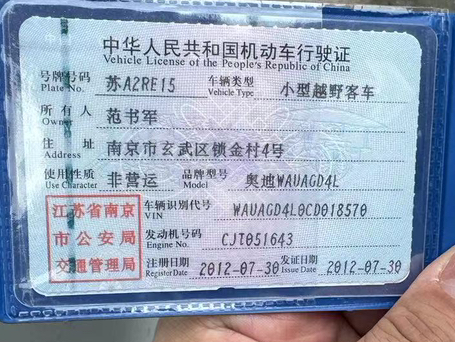 中华人民共和国机动车行驶证
Vehicle License of the People's Republic of China
号牌号码 苏A2RE15 车辆类型 小型越野客车
Plate No. Vehicle Type
所有人 范书军
Owner
住址 南京市玄武区锁金村4号
Address
使用性质 非营运 品牌型号 奥迪WAUAGD4L
Use Character Model
江苏省南京
市公安局
交通管理局
车辆识别代号 WAUAGD4L0CD018570
VIN
发动机号码 CJT051643
Engine No.
注册日期 2012-07-30 发证日期 2012-07-30
Register Date Issue Date